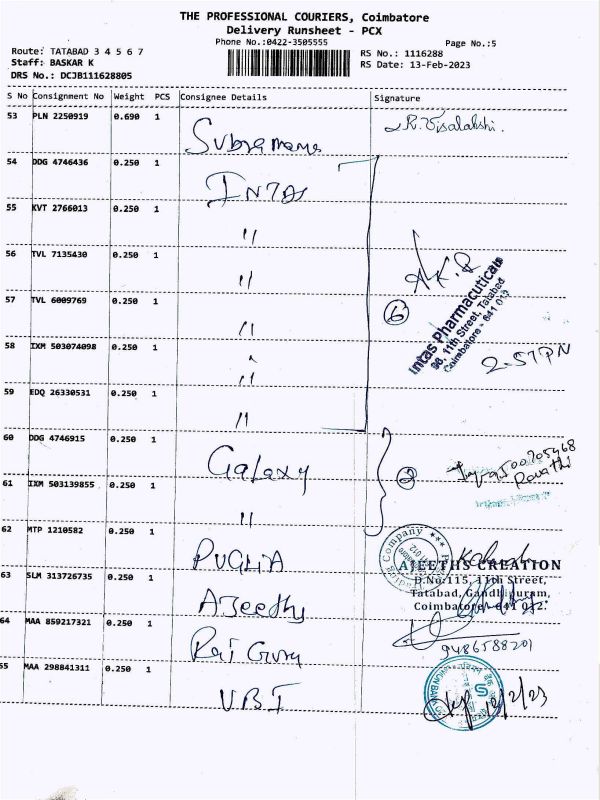 THE PROFESSIONAL COURIERS, Coimbatore
Delivery Runsheet - PCX
Phone No.:0422-3505555
Page No.:5
Route: TATABAD 3 4 5 6 7
Staff: BASKAR K
DRS No.: DCJB111628805
RS No.: 1116288
RS Date: 13-Feb-2023
S No Consignment No Weight PCS Consignee Details Signature
53 PLN 2250919 0.690 1 R. Visalakshi.
54 DDG 4746436 0.250 1
INTAS
55 KVT 2766013 0.250 1
"
56 TVL 7135430 0.250 1
"
A.K.R
57 TVL 6009769 0.250 1
"
6
Intas Pharmaceutical
98, 11th Street, Tatabad
Coimbatore - 641 012
58 IXM 503074098 0.250 1
"
2.57PN
59 EDQ 26330531 0.250 1
"
60 DDG 4746915 0.250 1
Galaxy
2
Revathi
61 IXM 503139855 0.250 1
"
62 MTP 1210582 0.250 1
Company
AJEETHS CREATION
D.No:115, 11th Street,
Tatabad, Gandhipuram,
Coimbatore - 641 012.
63 SLM 313726735 0.250 1
64 MAA 859217321 0.250 1
9486588201
65 MAA 298841311 0.250 1
UBI